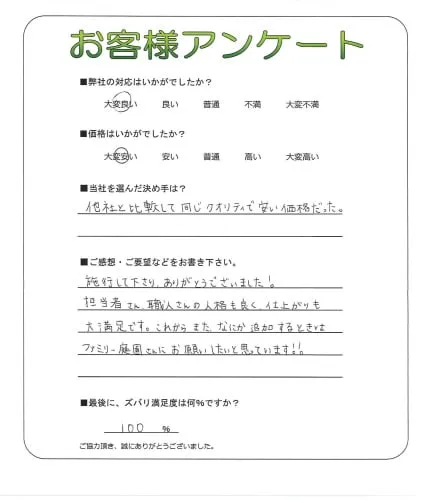 お客様アンケート
■弊社の対応はいかがでしたか？
大変良い 良い 普通 不満 大変不満
■価格はいかがでしたか？
大変安い 安い 普通 高い 大変高い
■当社を選んだ決め手は？
他社と比較して同じクオリティで安い価格だった。
■ご感想・ご要望などをお書き下さい。
施行して下さり、ありがとうございました！。
担当者さん、職人さんの人格も良く、仕上がりも
大満足です。これからまた、なにか追加するときは
ファミリー庭園さんにお願いしたいと思っています!!
■最後に、ズバリ満足度は何%ですか？
100 %
ご協力頂き、誠にありがとうございました。